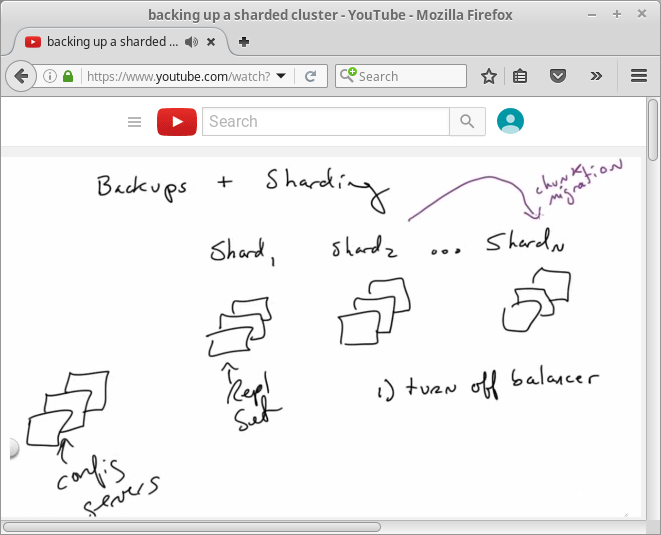 backing up a sharded cluster - YouTube - Mozilla Firefox
backing up a sharded ...
https://www.youtube.com/watch?
Search
Search
Backups + Sharding
chunk
migration
Shard1 Shard2 ... ShardN
Repl
Set
1) turn off balancer
config
servers